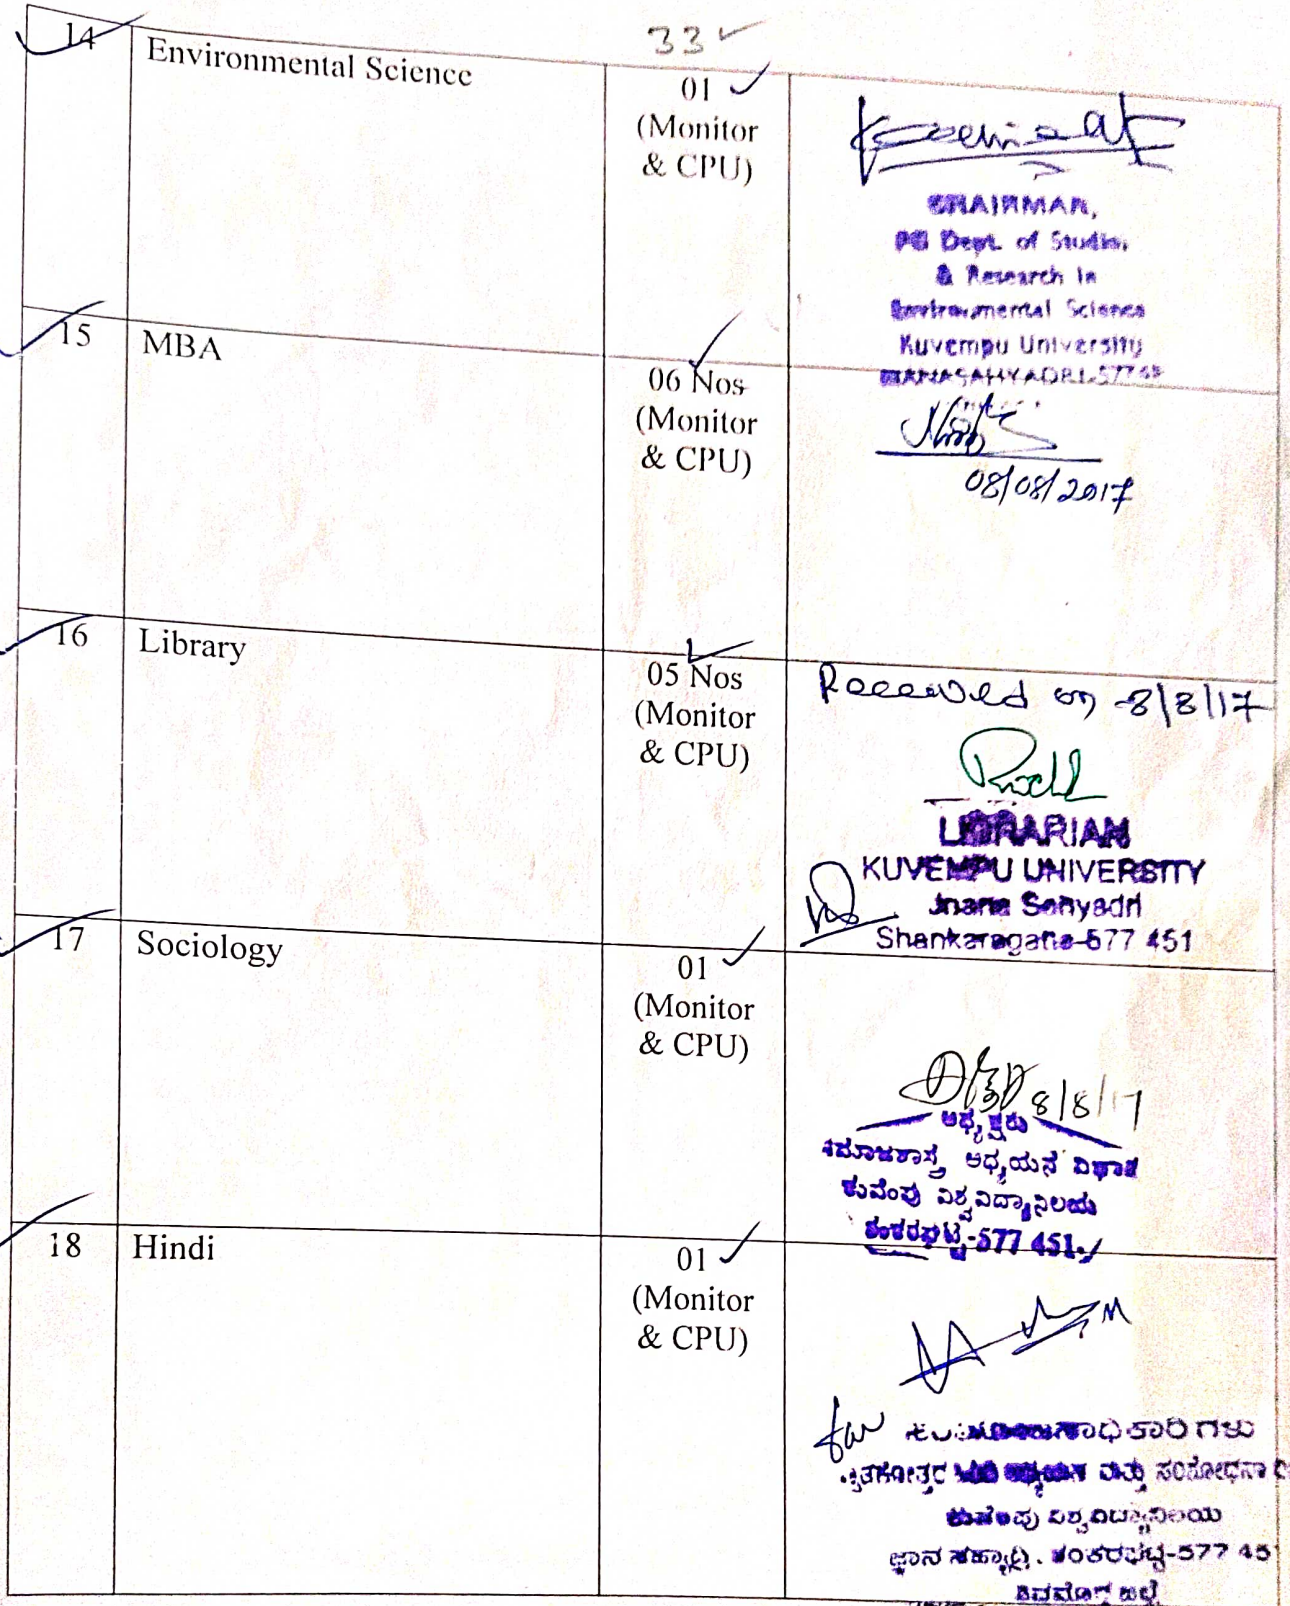 33
14
Environmental Science
01
(Monitor
& CPU)
CHAIRMAN,
PG Dept. of Studies,
& Research in
Environmental Science
Kuvempu University
15
MBA
06 Nos
(Monitor
& CPU)
08/08/2017
16
Library
05 Nos
(Monitor
& CPU)
Received on 8/8/17
LIBRARIAN
KUVEMPU UNIVERSITY
Jnana Sahyadri
Shankaragatta-577 451
17
Sociology
01
(Monitor
& CPU)
8/8/17
ಅಧ್ಯಕ್ಷರು
ಸಮಾಜಶಾಸ್ತ್ರ ಅಧ್ಯಯನ ವಿಭಾಗ
ಕುವೆಂಪು ವಿಶ್ವವಿದ್ಯಾನಿಲಯ
ಶಂಕರಘಟ್ಟ-577 451.
18
Hindi
01
(Monitor
& CPU)
for
ಮತ್ತು ಸಂಶೋಧನಾ
ಕುವೆಂಪು ವಿಶ್ವವಿದ್ಯಾನಿಲಯ
ಜ್ಞಾನ ಸಹ್ಯಾದ್ರಿ, ಶಂಕರಘಟ್ಟ-577 451
ಶಿವಮೊಗ್ಗ ಜಿಲ್ಲೆ